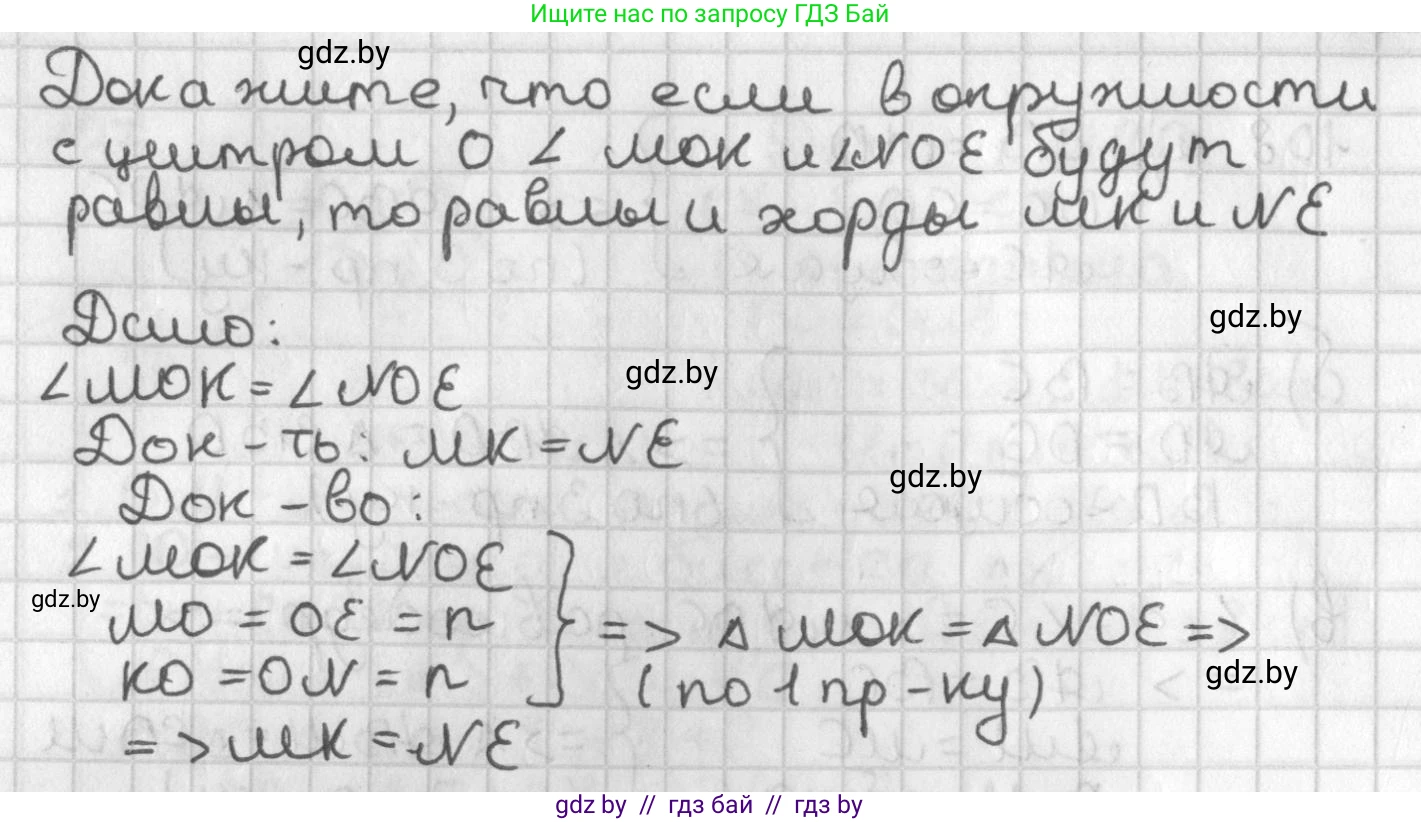 Ищите нас по запросу ГДЗ Бай
gdz.by
Докажите, что если в окружности
с центром O ∠ MOK и ∠NOE будут
равны, то равны и хорды MK и NE
Дано:
gdz.by
∠MOK = ∠NOE
gdz.by
Док-ть: MK = NE
gdz.by
Док-во:
∠MOK = ∠NOE
gdz.by
MO = OE = r
=> △ MOK = △ NOE =>
KO = ON = r
(по 1 пр-ку)
gdz.by
=> MK = NE
gdz by // гдз бай // гдз by